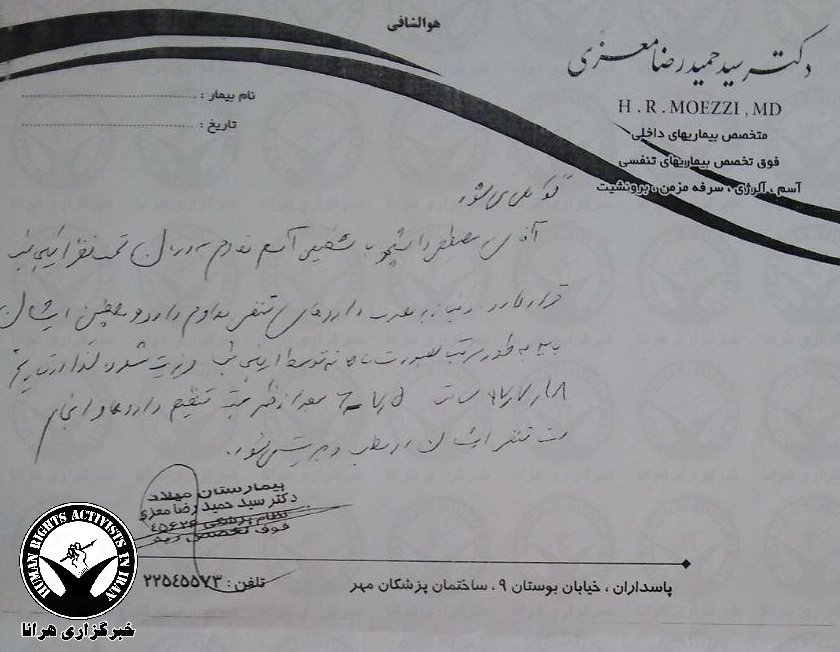 هوالشافی
دکتر سید حمید رضا معزی
H . R . MOEZZI , MD
متخصص بیماریهای داخلی
فوق تخصص بیماریهای تنفسی
آسم ، آلرژی ، سرفه مزمن ، برونشیت
نام بیمار :
تاریخ :
گواهی می شود
آقای مصطفی دانشجو با تشخیص آسم مداوم تحت درمان تحت نظر اینجانب
قرار دارد نیاز به مصرف داروهای تنفسی مداوم دارد و همچنین ایشان
باید به طور مرتب بصورت ماهانه توسط اینجانب ویزیت شود لذا در تاریخ
ساعت بعدازظهر جهت تنظیم داروها و انجام
تست تنفس ایشان در مطب ویزیت می شود.
بیمارستان میلاد
دکتر سید حمید رضا معزی
نظام پزشکی ۴۵۶۲۶
فوق تخصص ریه
پاسداران ، خیابان بوستان ۹ ، ساختمان پزشکان مهر
تلفن : ۲۲۵۴۵۵۷۳
HUMAN RIGHTS ACTIVISTS IN IRAN
خبرگزاری هرانا